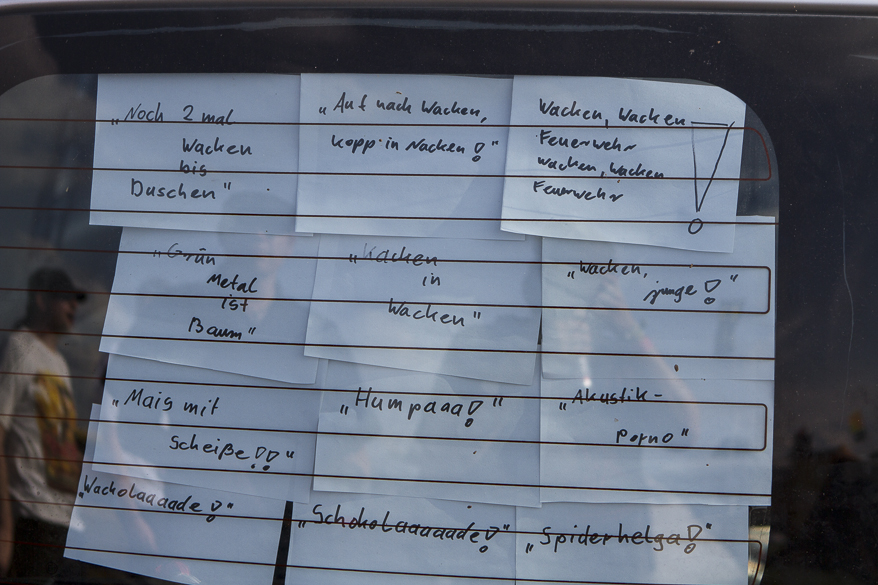 „Noch 2 mal
Wacken
bis
Duschen"
„Auf nach Wacken,
kopp in Nacken!"
Wacken, Wacken
Feuerwehr
Wacken, Wacken
Feuerwehr !
„Grün
Metal
ist
Baum"
„Kacken
in
Wacken"
„Wacken,
junge!"
„Mais mit
Scheiße!!"
„Humpaaa!"
„Akustik-
Porno"
„Wackolaaaade!"
„Schokolaaaaade!"
„Spiderhelga!"